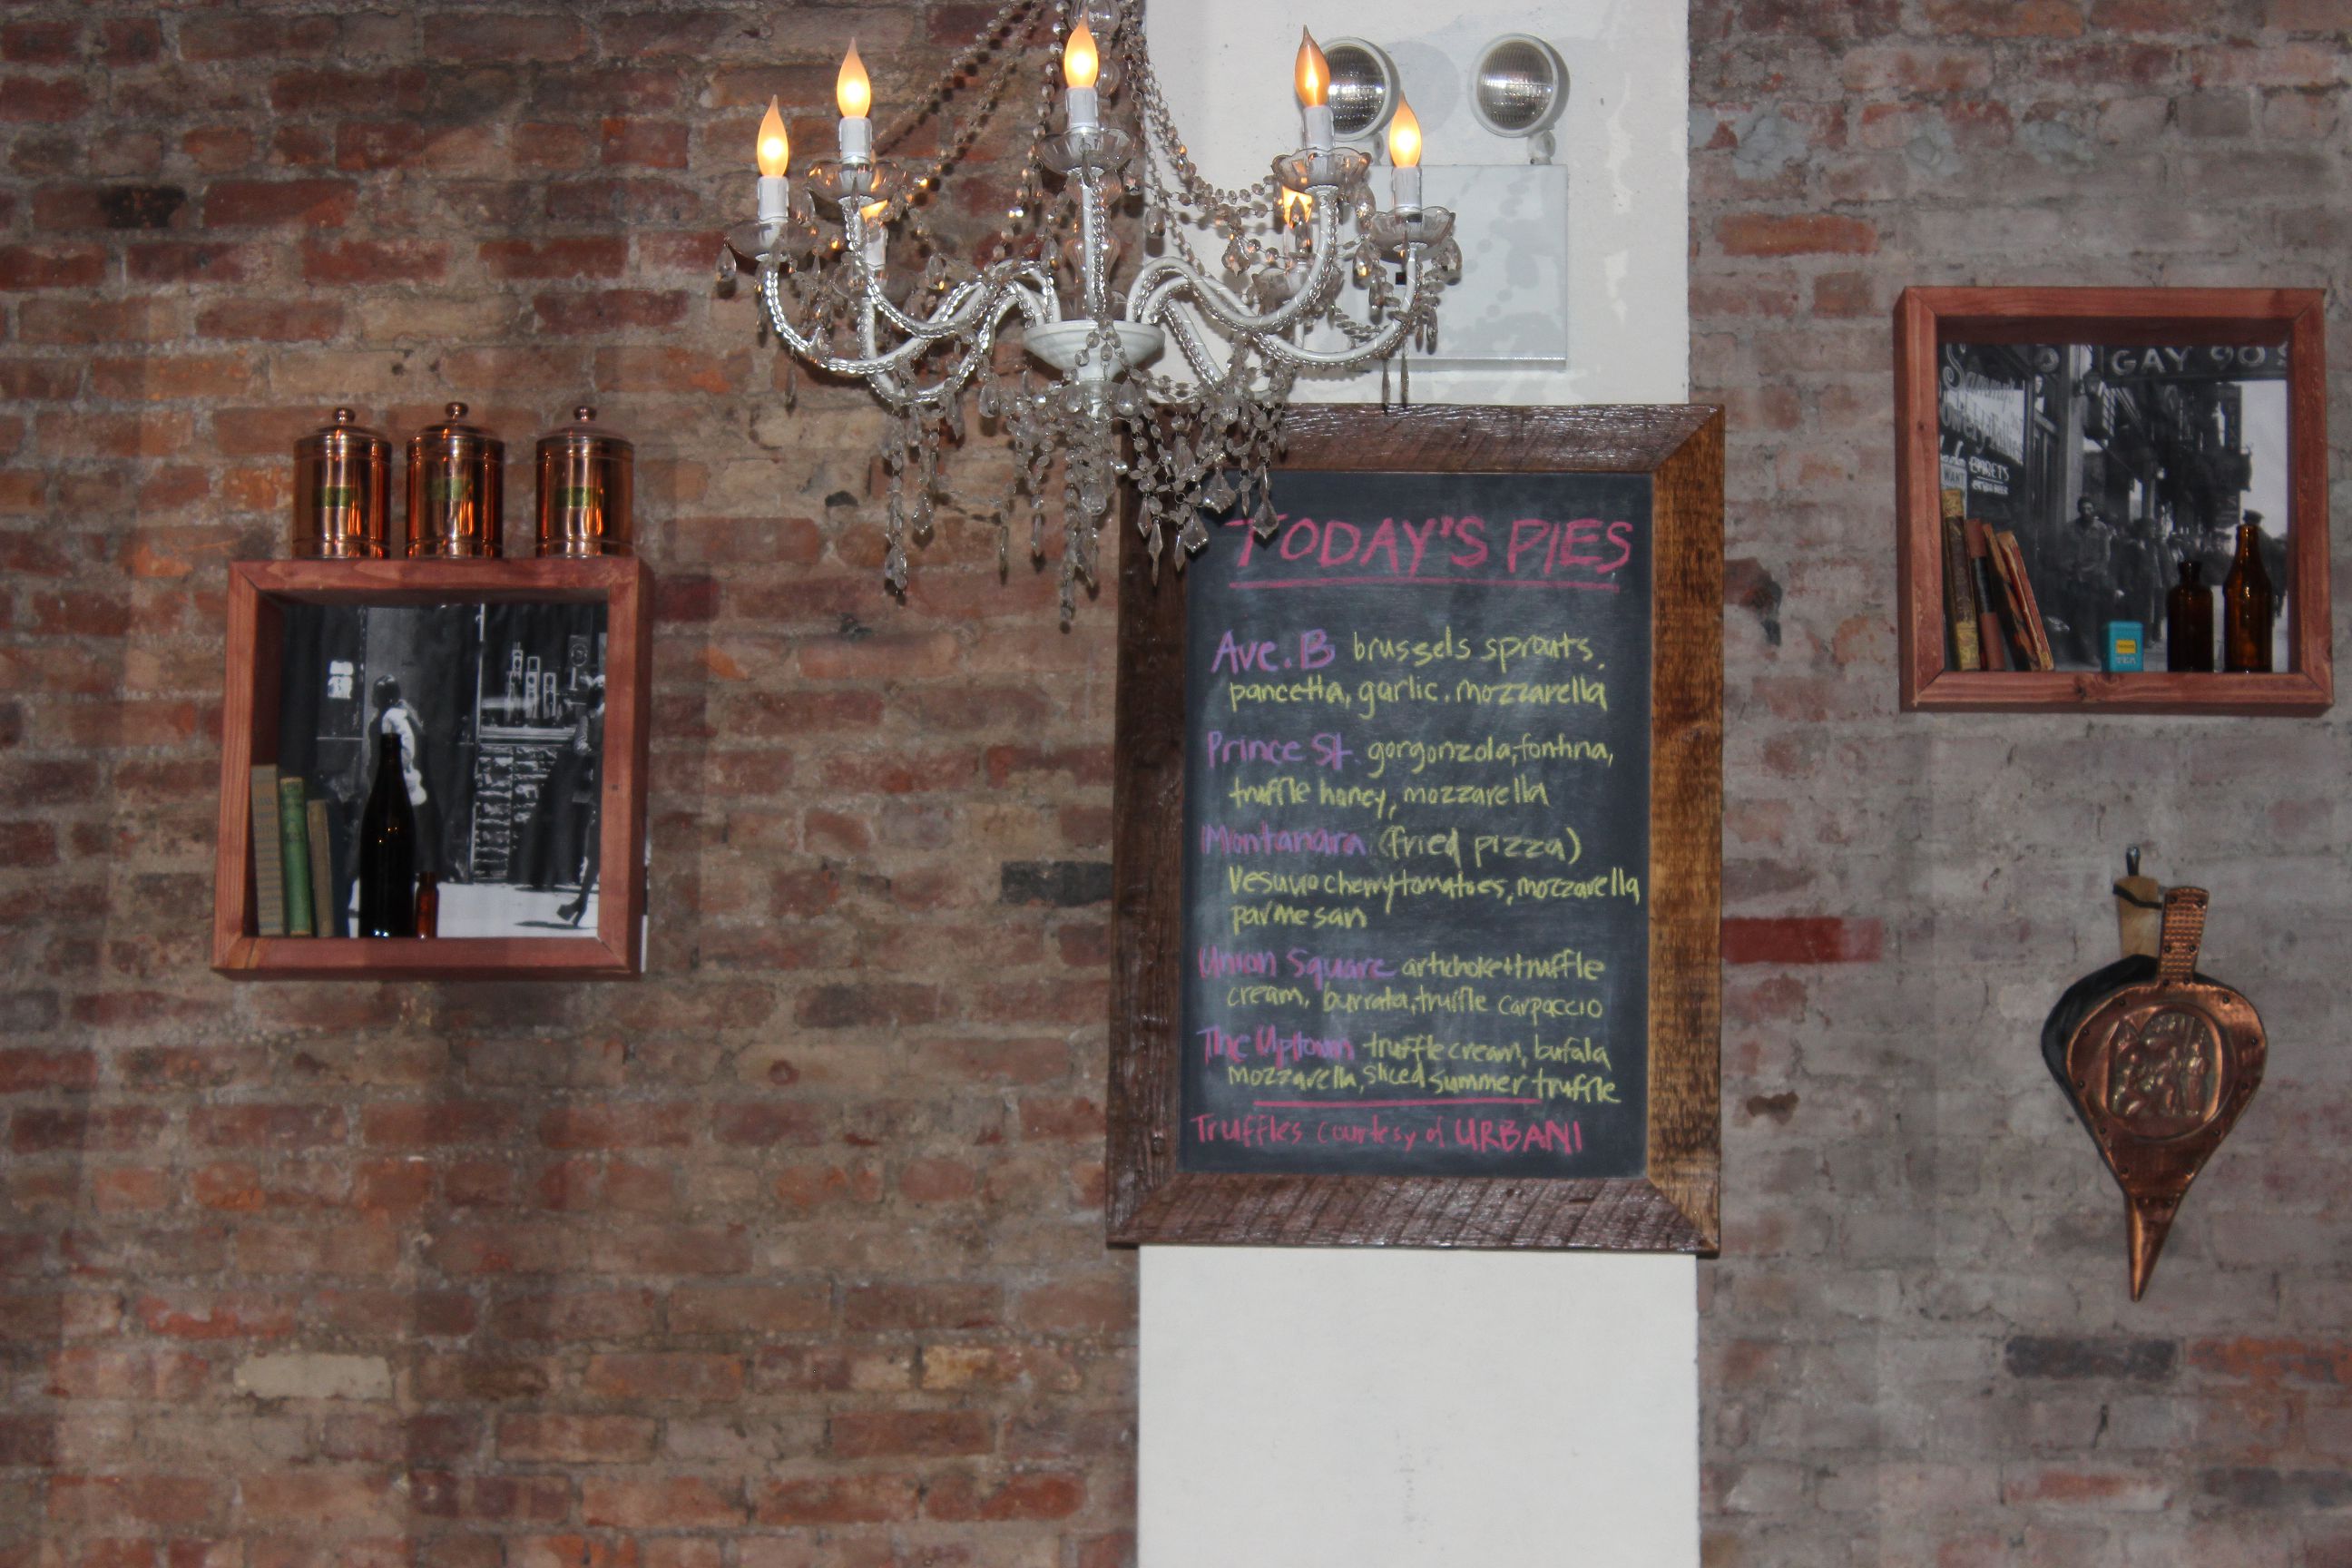 TODAY'S PIES
Ave. B brussels sprouts,
pancetta, garlic, mozzarella
Prince St. gorgonzola, fontina,
truffle honey, mozzarella
Montanara (fried pizza)
Vesuvio cherry tomatoes, mozzarella
parmesan
Union Square artichoke + truffle
cream, burrata, truffle carpaccio
The Uptown truffle cream, bufala
mozzarella, sliced summer truffle
Truffles courtesy of URBANI
GAY 90'S
Sammy's
TEA